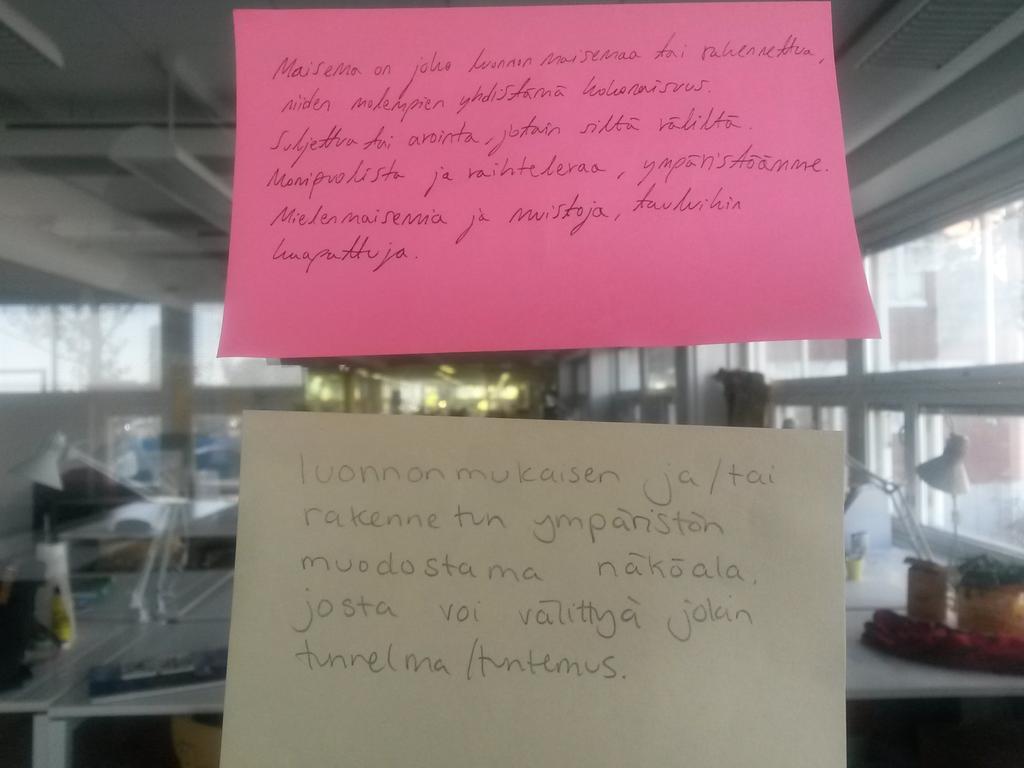 Maisema on joko luonnonmaisemaa tai rakennettua,
niiden molempien yhdistämä kokonaisuus.
Suljettua tai avointa, jotain siltä väliltä.
Monipuolista ja vaihtelevaa, ympäristöämme.
Mielenmaisemia ja muistoja, tauluihin
kaapattuja.
luonnonmukaisen ja/tai
rakennetun ympäristön
muodostama näköala,
josta voi välittyä jokin
tunnelma/tuntemus.